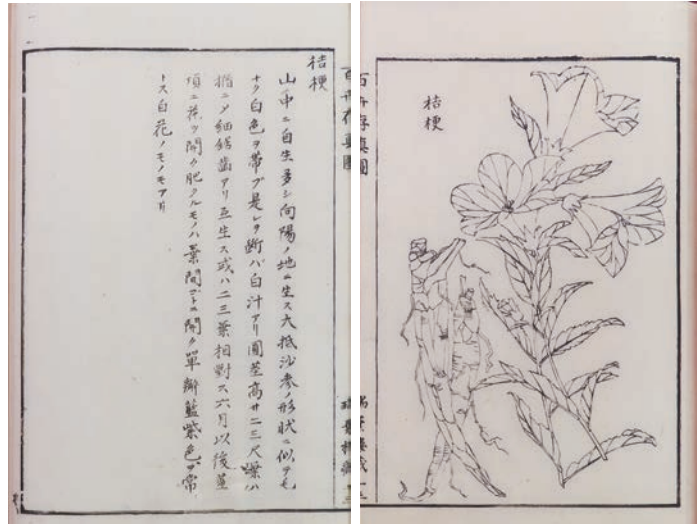 桔梗
山ノ中ニ自生多シ向陽ノ地ニ生ス大抵沙參ノ形状ニ似タモ
ナク白色ヲ帯ブ是レヲ断バ白汁アリ圓莖高サ二三尺葉ハ
楕ニ〆細鋸齒アリ互生ス或ハ二三葉相對ス六月以後莖
頂ニ花ヲ開ク肥タルモノハ葉間ゴトニ開ク單瓣藍紫色ヲ常
トス白花ノモノモアリ
桔梗